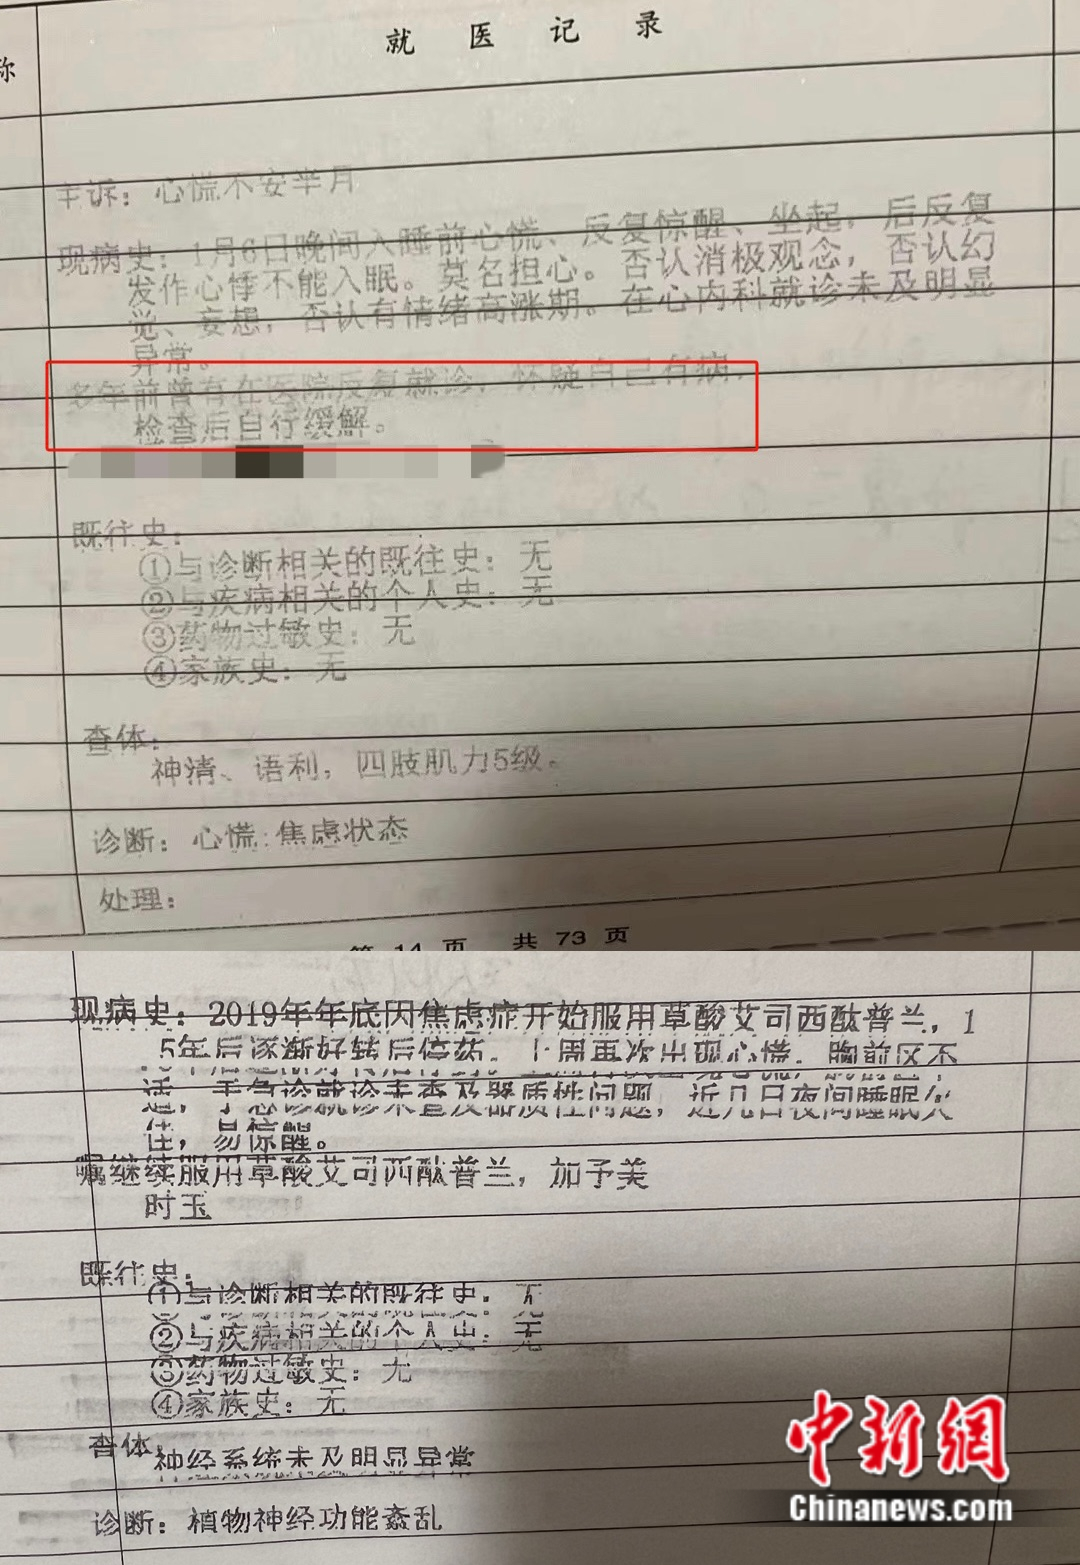 称
就医记录
主诉：心慌不安半月
现病史：1月6日晚间入睡前心慌、反复惊醒、坐起，后反复
发作心悸不能入眠。莫名担心。否认消极观念，否认幻
觉、妄想，否认有情绪高涨期。在心内科就诊未及明显
异常。
多年前曾有在医院反复就诊，怀疑自己有病，
检查后自行缓解。
既往史：
①与诊断相关的既往史：无
②与疾病相关的个人史：无
③药物过敏史：无
④家族史：无
查体：
神清、语利，四肢肌力5级。
诊断：心慌:焦虑状态
处理：
第 14 页 共 73 页
现病史：2019年年底因焦虑症开始服用草酸艾司西酞普兰，1
.5年后逐渐好转后停药。上周再次出现心慌，胸前区不
适，于急诊就诊未查及器质性问题，近几日夜间睡眠欠
佳，易惊醒。
嘱继续服用草酸艾司西酞普兰，加予美
时玉
既往史：
①与诊断相关的既往史：无
②与疾病相关的个人史：无
③药物过敏史：无
④家族史：无
查体：
神经系统未及明显异常
诊断：植物神经功能紊乱
中新網
Chinanews.com